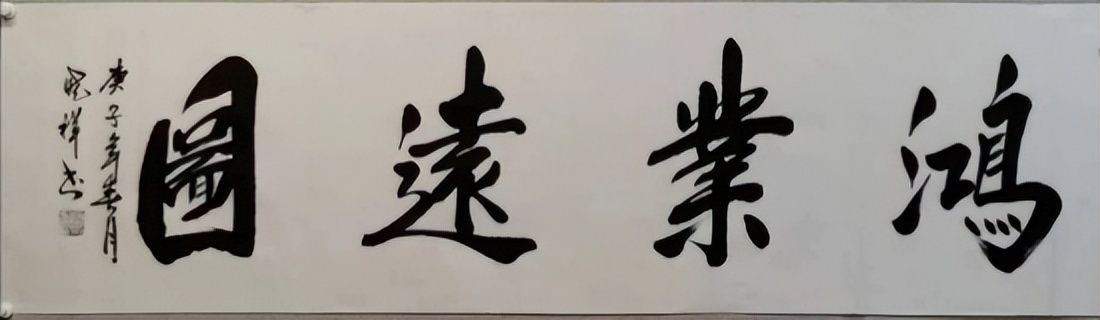 鴻業遠圖
庚子年春月
晓祥书